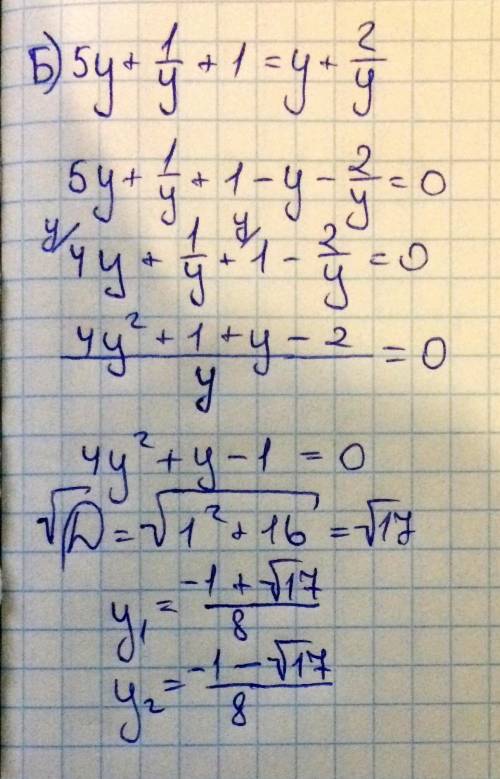 Б) 5y + 1/y + 1 = y + 2/y
5y + 1/y + 1 - y - 2/y = 0
y/ 4y + 1/y + y/ 1 - 2/y = 0
(4y² + 1 + y - 2)/y = 0
4y² + y - 1 = 0
√D = √(1² + 16) = √17
y₁ = (-1 + √17)/8
y₂ = (-1 - √17)/8